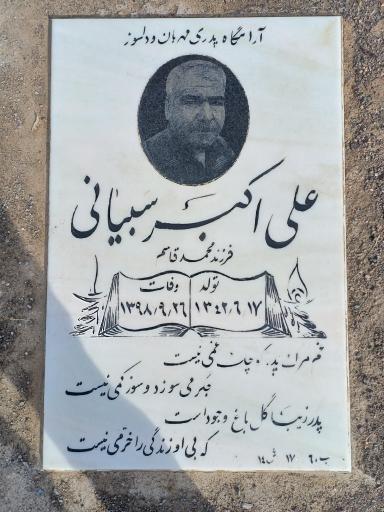 آرامگاه پدری مهربان و دلسوز
علی اکبر سبیانی
فرزند محمد قاسم
تولد وفات
۱۳۴۲٫۶٫۱۷ ۱۳۹۸٫۹٫۲۶
غم مرگ پدر که چنان غمی نیست
جگر می سوزد و سوز کمی نیست
پدر زیبا گل باغ وجود است
که بی او زندگی را خرمی نیست
ب ۶۰ ۱۷ ش ۱۴